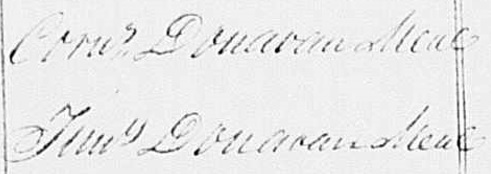 Corns Donavan Meal
Timy Donavan Meal